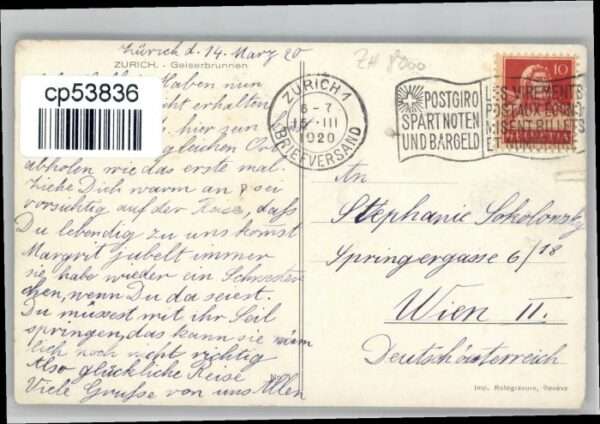 Zürich d. 14. März 20
ZURICH. - Geiserbrunnen
Haben nun
cp53836
nicht erhalten
hier zur
gleichen
abholen wie das erste mal.
Ziehe Dich warm an & sei
vorsichtig auf der Reise, daß
Du lebendig zu uns kommst
Margrit jubelt immer
sie habe wieder ein Schwester-
chen, wenn Du da seiest.
Du müssest mit ihr Seil
springen, das kann sie näm
lich noch nicht richtig
Also glückliche Reise
Viele Grüße von uns Allen
ZH 8000
ZÜRICH 1
6-7
15. III
1920
BRIEFVERSAND
POSTGIRO
SPART NOTEN
UND BARGELD
LES VIREMENTS
POSTAUX
10
An
Stephanie Sokolonsky
Springergasse 6/18
Wien II.
Deutschösterreich
Imp. Rotogravure, Genève